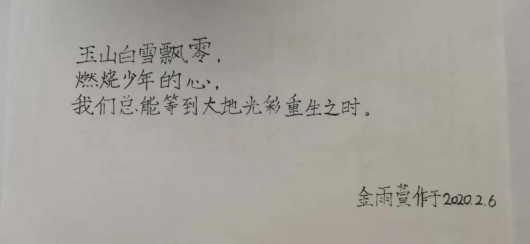 玉山白雪飘零，
燃烧少年的心，
我们总能等到大地光彩重生之时。
金雨萱作于2020.2.6